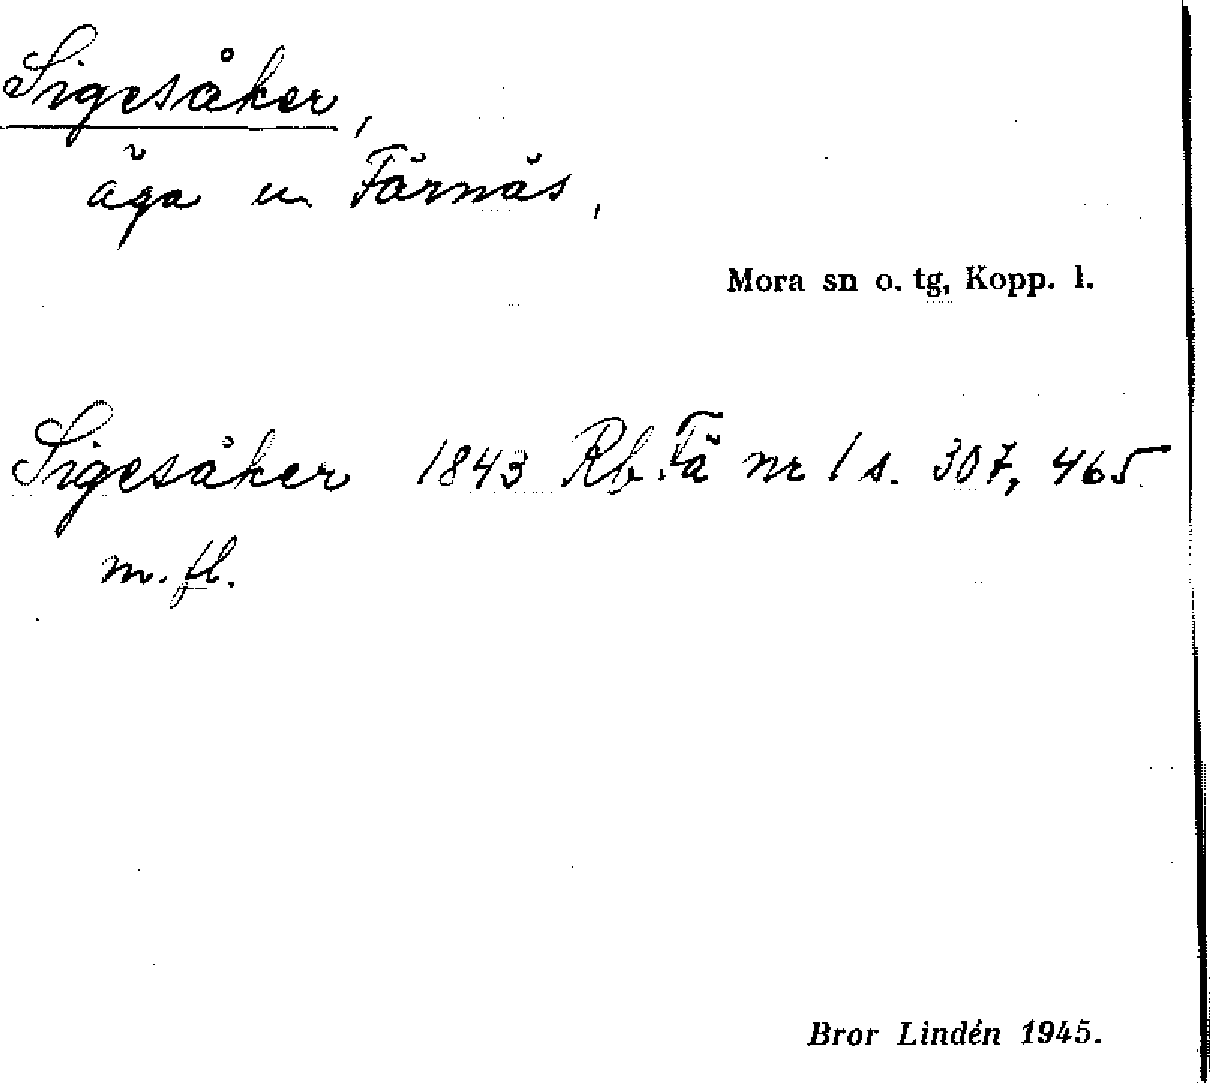 Sigesåker,
äga u Färnäs,
Mora sn o. tg, Kopp. l.
Sigesåker 1843 Rb Fä nr 1 s. 307, 465
m. fl.
Bror Lindén 1945.